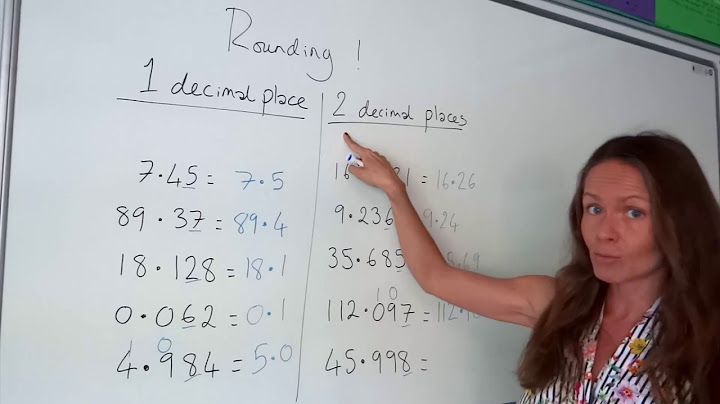 Rounding !
1 decimal place
7.45 = 7.5
89.37 = 89.4
18.128 = 18.1
0.062 = 0.1
1 0
4.984 = 5.0
2 decimal places
= 16.26
9.236 9.24
35.685
1 0
112.097 =
45.998 =